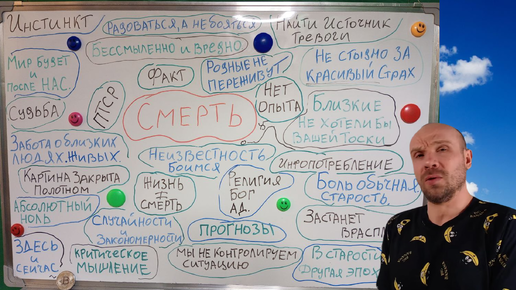 Инстинкт
Радоваться, а не бояться
Найти источник
тревоги
Бессмысленно и вредно
Мир будет
и
после нас.
Факт
Родные не
переживут
Не стыдно за
красивый страх
Судьба
ПТСР
Смерть
Нет
опыта
Близкие
не хотели бы
вашей тоски
Забота о близких
людях. живых.
Неизвестность
боимся
Инфопотребление
Картина закрыта
полотном
Жизнь
и
смерть
Религия
Бог
Ад.
Боль обычная
старость.
Абсолютный
ноль
Случайности
и
закономерности
Прогнозы
Застанет
врасплох
Здесь
и
сейчас
Критическое
мышление
Мы не контролируем
ситуацию
В старости
другая эпоха
В